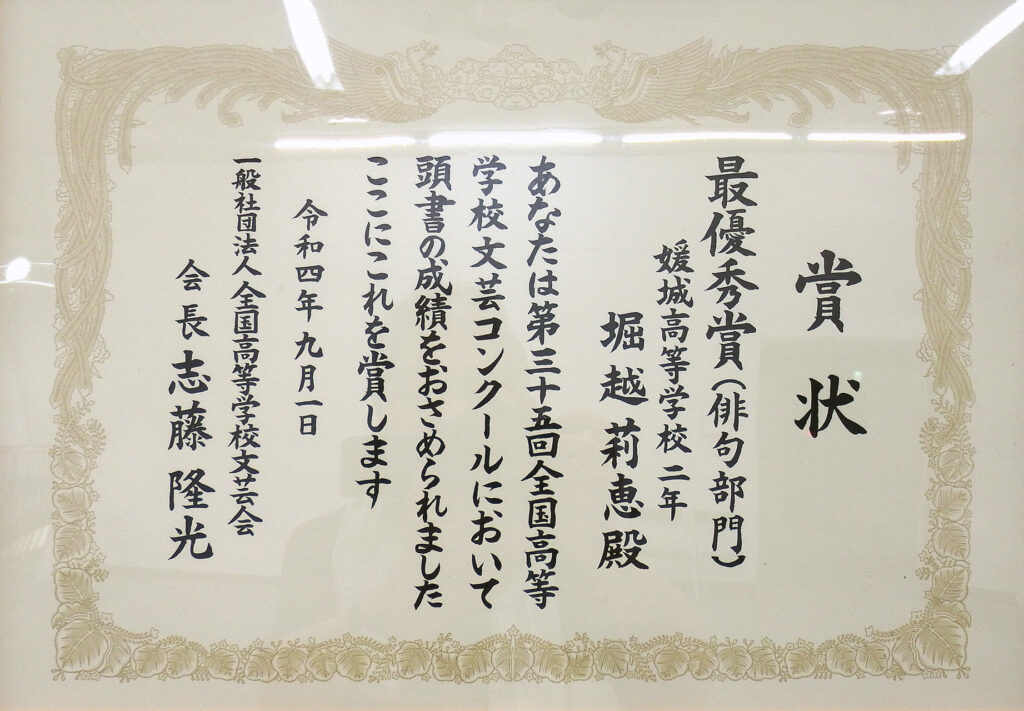 賞状
最優秀賞(俳句部門)
媛城高等学校二年
堀越莉恵殿
あなたは第三十五回全国高等
学校文芸コンクールにおいて
頭書の成績をおさめられました
ここにこれを賞します
令和四年九月一日
一般社団法人全国高等学校文芸会
会長志藤隆光